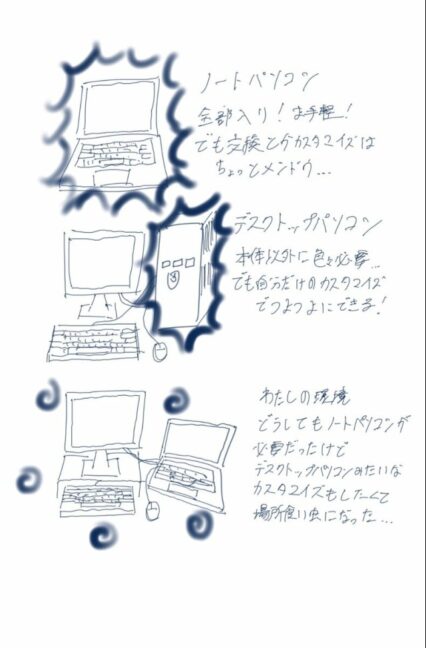 ノートパソコン
全部入り!お手軽!
でも交換とかカスタマイズは
ちょっとメンドウ...
デスクトップパソコン
本体以外に色々必要...
でも自分だけのカスタマイズ
でつよつよにできる!
わたしの環境
どうしてもノートパソコンが
必要だったけど
デスクトップパソコンみたいな
カスタマイズもしたくて
場所食い虫になった...